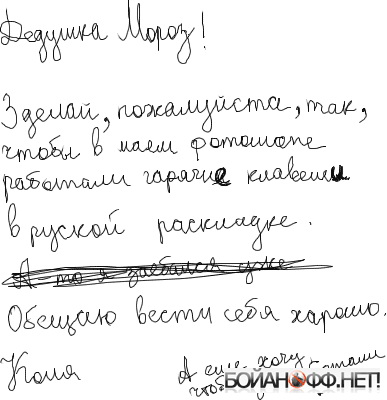 Дедушка Мороз!
Зделай, пожалуйста, так,
чтобы в маем фотошопе
работали гарячие клавеши
в руской раскладке.
А то я заебался уже
Обещаю вести себя харошо.
Коля
А еще хочу
чтоб
БОЙАНОФФ.НЕТ!